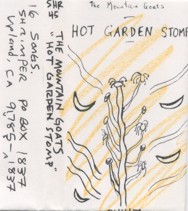 The Mountain Goats
HOT GARDEN STOMP
SHR
HS
THE MOUNTAIN GOATS
"HOT GARDEN STOMP"
16 SONGS.
SHRIMPER PO BOX 1837
UPLAND, CA 91785-1837